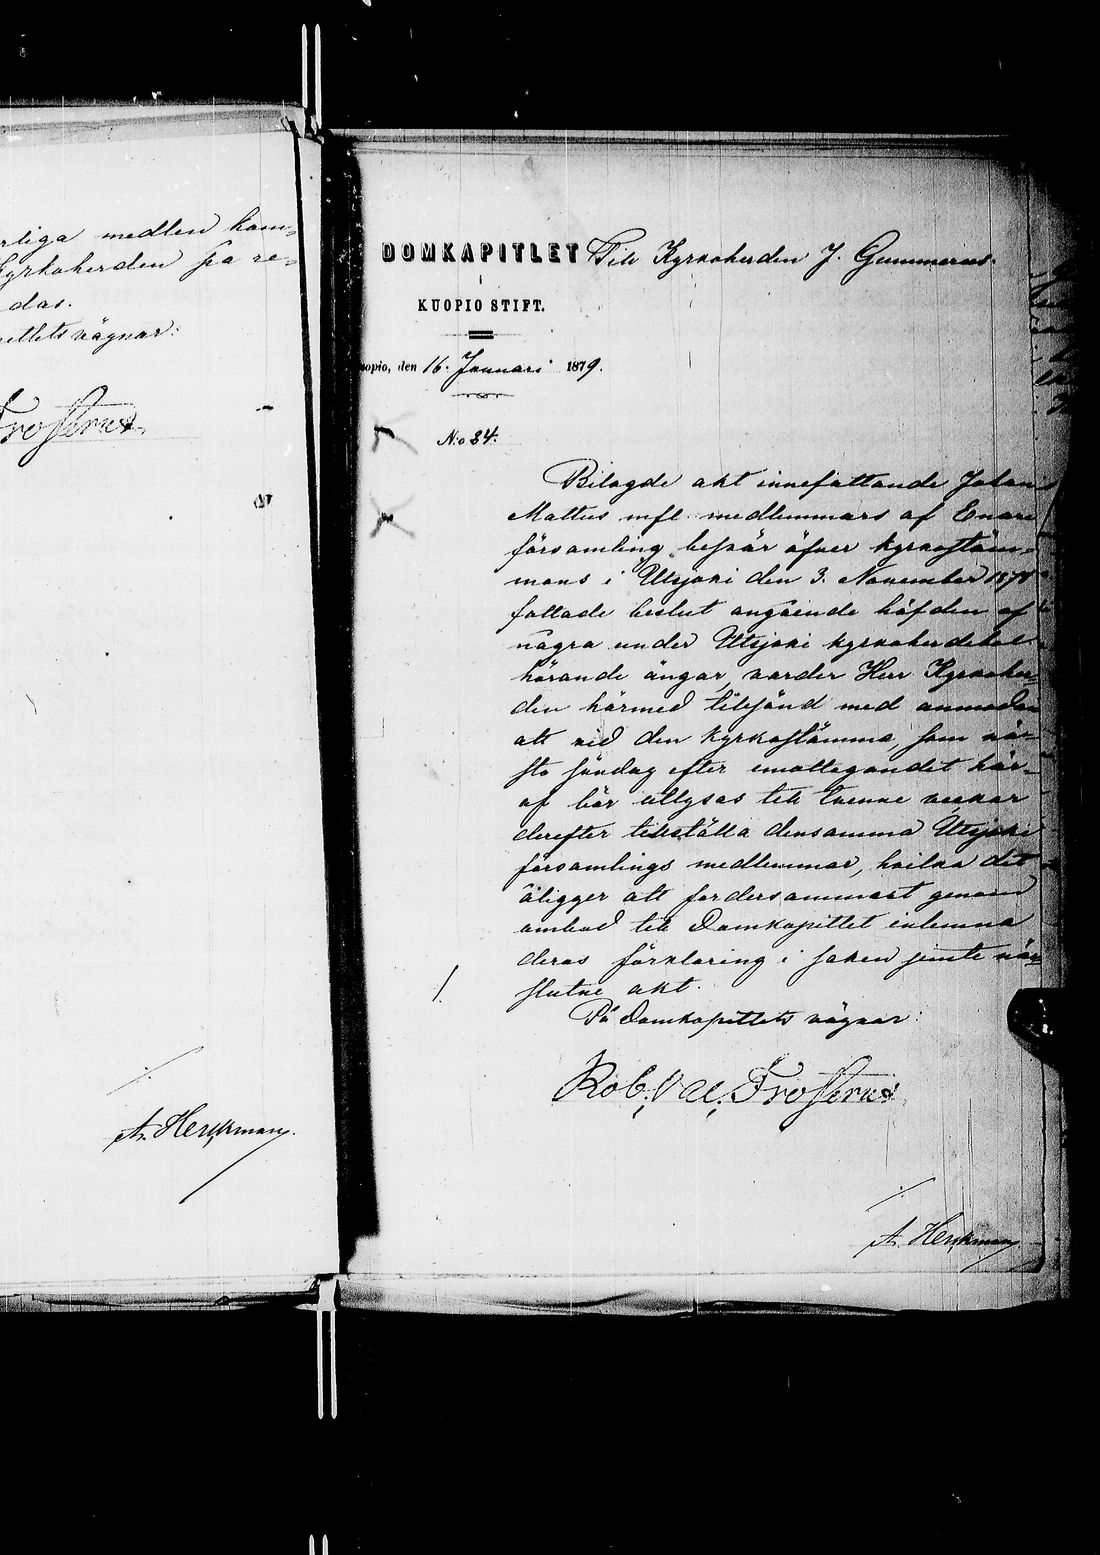 rliga medlen kom-
Kyrkoherden på re-
das.
pitlets vägnar:
Frosterus
A. Herckman.
DOMKAPITLET
i
KUOPIO STIFT.
Till Kyrkoherden J. Gummerus.
uopio, den 16. Januari 1879.
N:o 34.
Bilagde akt innefattande Johan
Mattus mfl. medlemmars af Enare
församling besvär öfver kyrkostäm-
mans i Utsjoki den 3. November 1878
fattade beslut angående häfden af
några under Utsjoki kyrkoherdebol
hörande ängar, varder Herr Kyrkoher-
den härmed tillsänd med anmodan
att vid den kyrkostämma, som nä-
sta söndag efter emottagandet här-
af bör utlysas till tvenne veckor
derefter tillställa densamma Utsjoki
församlings medlemmar, hvilka det
åligger att fordersammast genom
ombud till Domkapitlet inlemna
deras förklaring i saken jemte när
slutne akt.
På Domkapitlets vägnar:
Rob. Val. Frosterus
A. Herckman